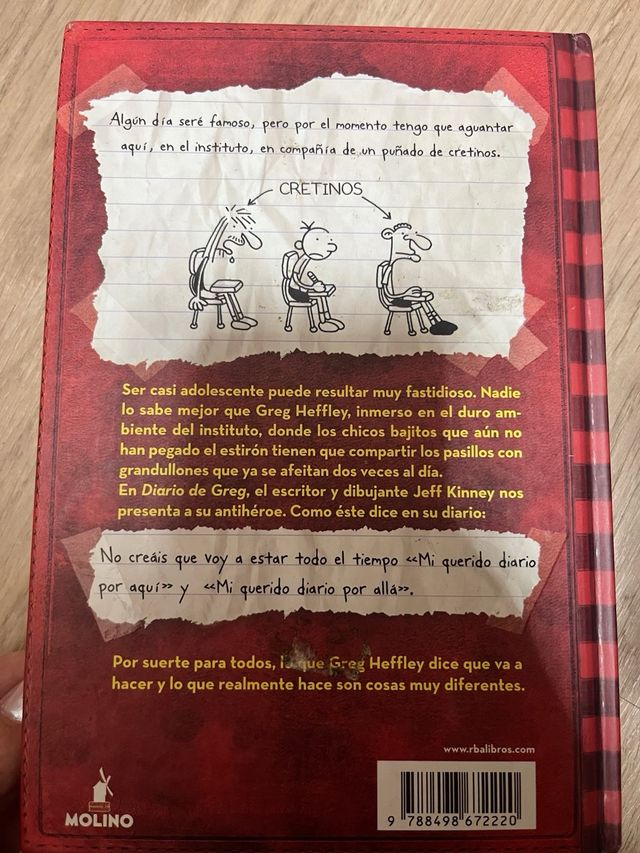 Algún día seré famoso, pero por el momento tengo que aguantar
aquí, en el instituto, en compañía de un puñado de cretinos.
CRETINOS
Ser casi adolescente puede resultar muy fastidioso. Nadie
lo sabe mejor que Greg Heffley, inmerso en el duro am-
biente del instituto, donde los chicos bajitos que aún no
han pegado el estirón tienen que compartir los pasillos con
grandullones que ya se afeitan dos veces al día.
En Diario de Greg, el escritor y dibujante Jeff Kinney nos
presenta a su antihéroe. Como éste dice en su diario:
No creáis que voy a estar todo el tiempo «Mi querido diario
por aquí» y «Mi querido diario por allá».
Por suerte para todos, lo que Greg Heffley dice que va a
hacer y lo que realmente hace son cosas muy diferentes.
www.rbalibros.com
MOLINO
9 788498 672220